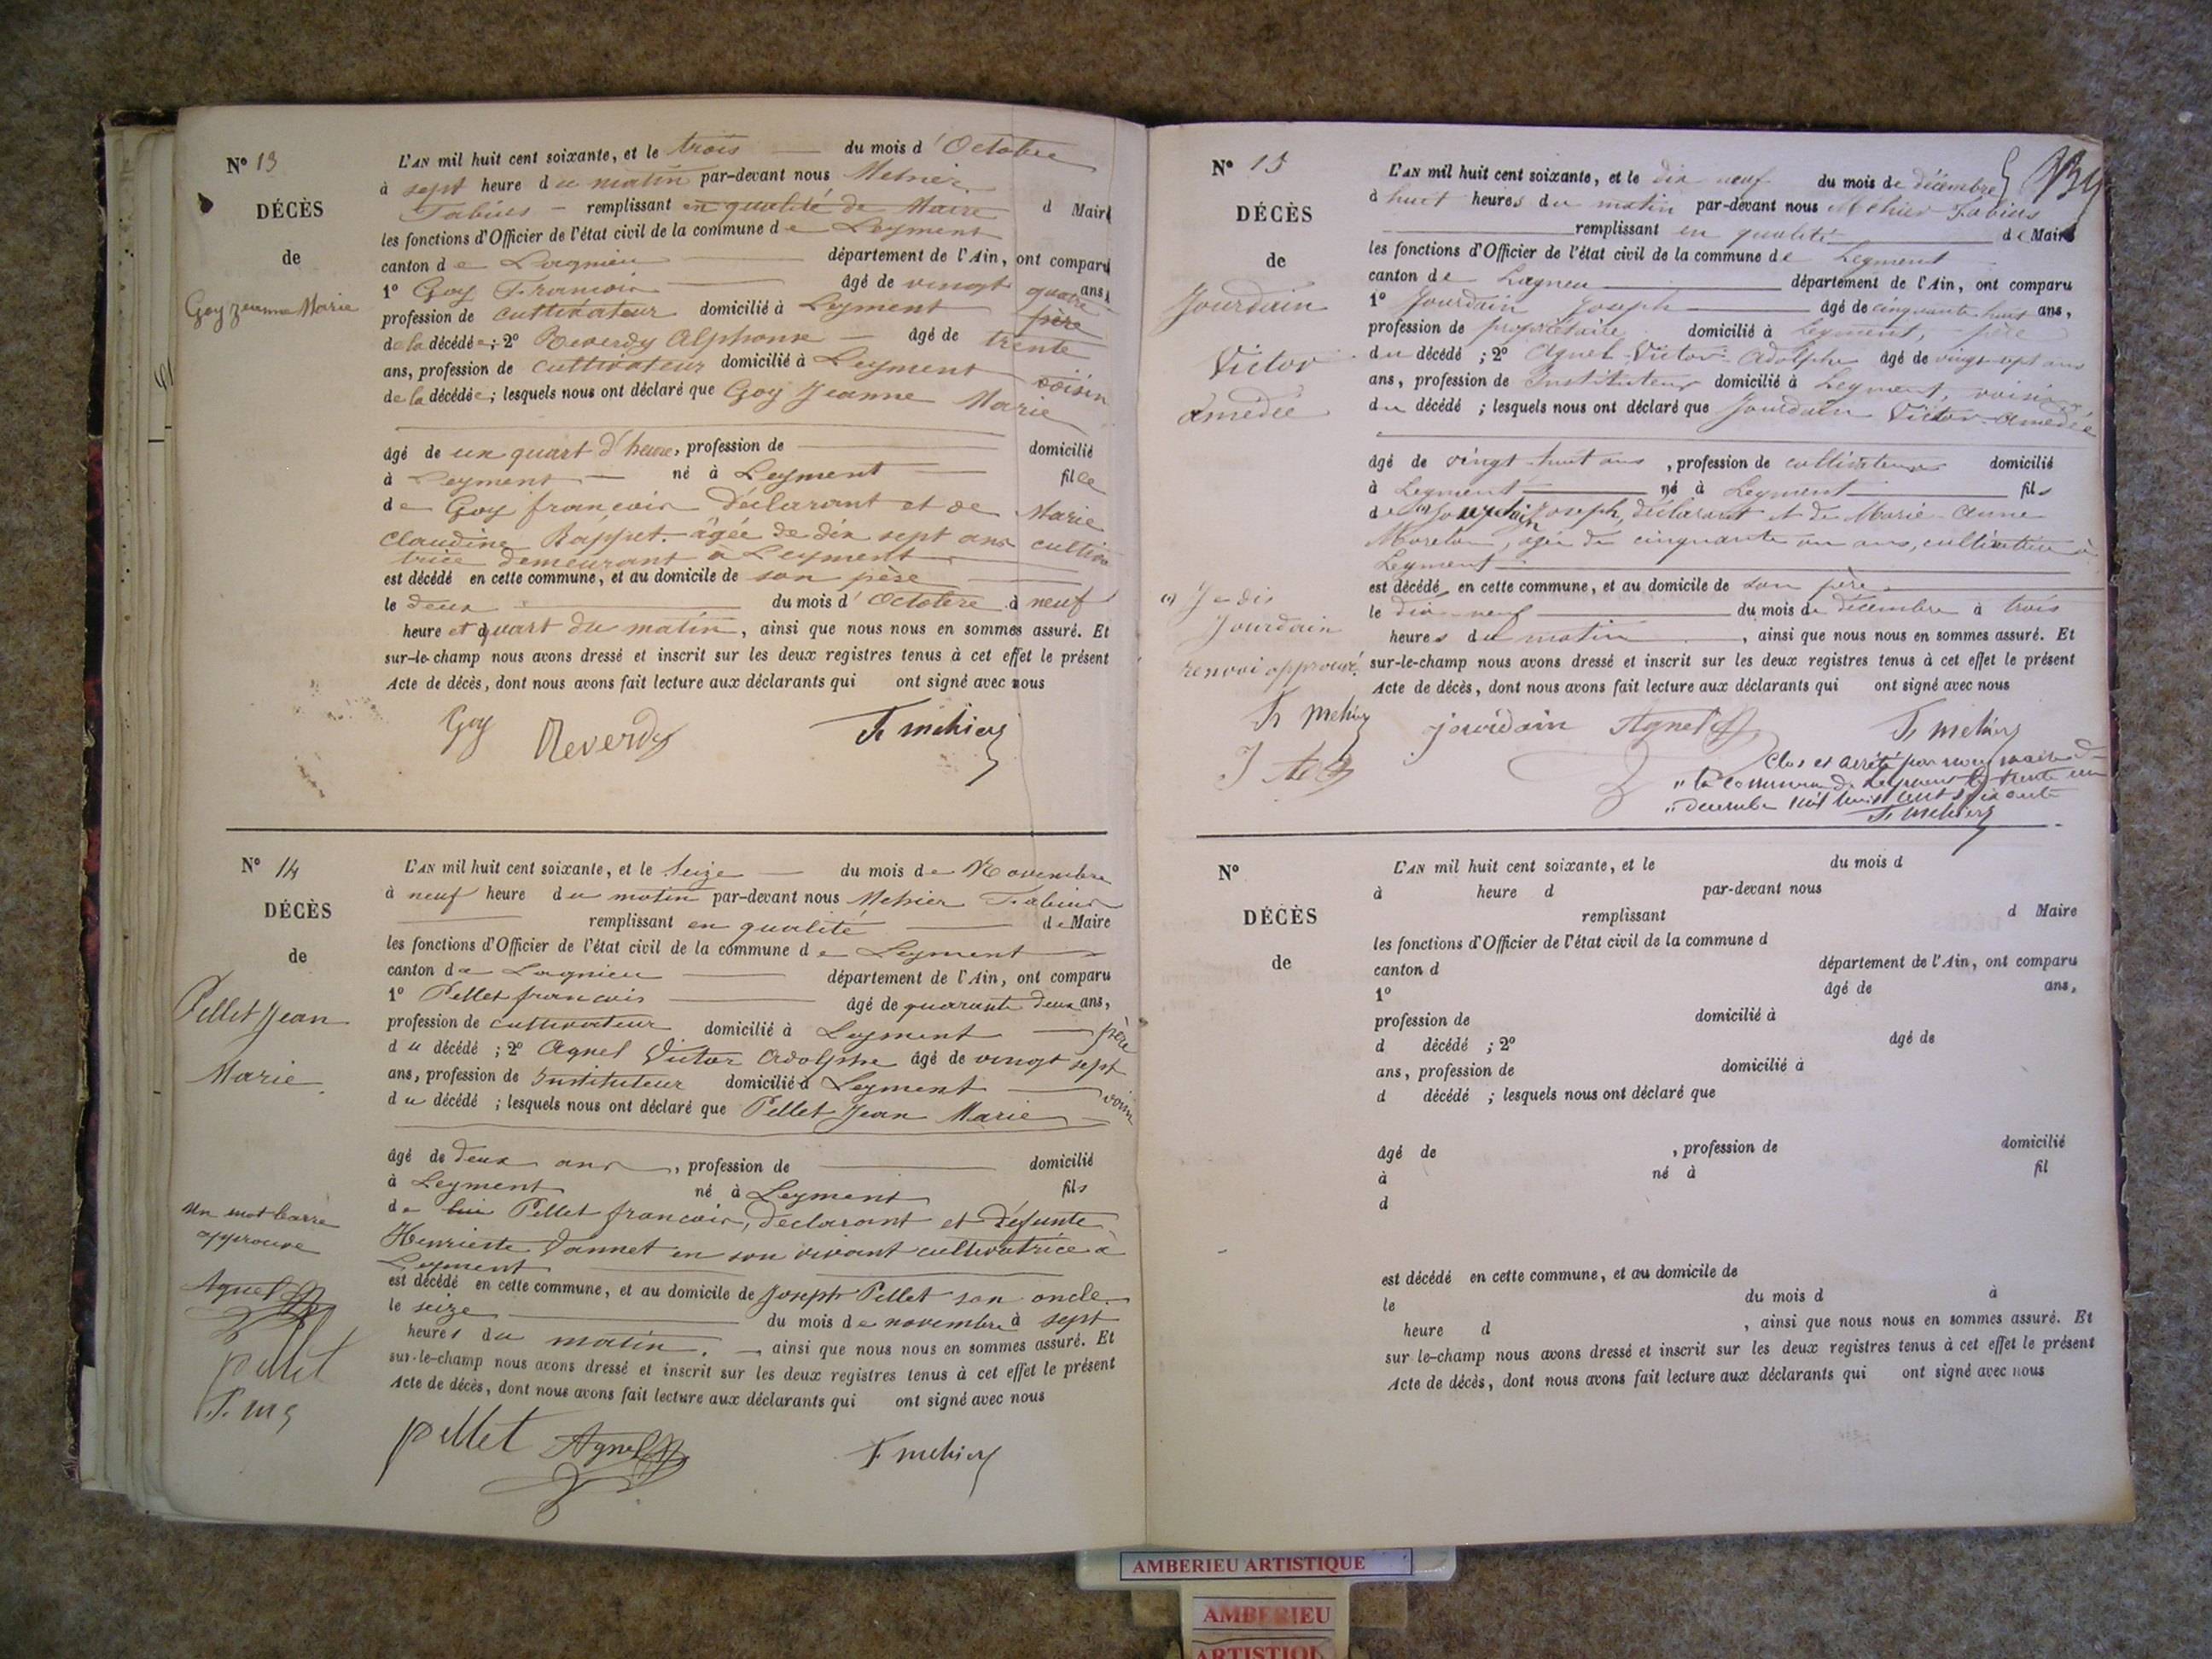 N° 13
DÉCÈS
de
Goy Jeanne Marie
L'AN mil huit cent soixante, et le trois du mois d'Octobre
à sept heure du matin par-devant nous Mehier
Fabius remplissant en qualité de Maire d Maire
les fonctions d'Officier de l'état civil de la commune de Leyment
canton de Lagnieu département de l'Ain, ont comparu
1° Goy François âgé de vingt quatre ans,
profession de cultivateur domicilié à Leyment père
de la décédée; 2° Reverdy Alphonse âgé de trente
ans, profession de cultivateur domicilié à Leyment voisin
de la décédée; lesquels nous ont déclaré que Goy Jeanne Marie
âgé de un quart d'heure, profession de domicilié
à Leyment né à Leyment fille
de Goy françois Déclarant et de Marie
Claudine Rappet âgée de dix sept ans cultiva
trice demeurant à Leyment
est décédé en cette commune, et au domicile de son père
le deux du mois d'Octobre à neuf
heure et quart du matin, ainsi que nous nous en sommes assuré. Et
sur-le-champ nous avons dressé et inscrit sur les deux registres tenus à cet effet le présent
Acte de décès, dont nous avons fait lecture aux déclarants qui ont signé avec nous
Goy Reverdy F mehier
N° 14
DÉCÈS
de
Pellet Jean
Marie
un mot barré
approuvé
Agnel
pellet
F. m
L'AN mil huit cent soixante, et le Seize du mois de Novembre
à neuf heure du matin par-devant nous Mehier Fabius
remplissant en qualité de Maire
les fonctions d'Officier de l'état civil de la commune de Leyment
canton de Lagnieu département de l'Ain, ont comparu
1° Pellet françois âgé de quarante deux ans,
profession de cultivateur domicilié à Leyment père
du décédé; 2° Agnel Victor Adolphe âgé de vingt sept
ans, profession de Instituteur domicilié à Leyment voisin
du décédé; lesquels nous ont déclaré que Pellet Jean Marie
âgé de deux ans, profession de domicilié
à Leyment né à Leyment fils
de lui Pellet françois, déclarant et défunte
Henriette Vannet en son vivant cultivatrice à
Leyment
est décédé en cette commune, et au domicile de Joseph Pellet son oncle
le seize du mois de novembre à sept
heures du matin, ainsi que nous nous en sommes assuré. Et
sur-le-champ nous avons dressé et inscrit sur les deux registres tenus à cet effet le présent
Acte de décès, dont nous avons fait lecture aux déclarants qui ont signé avec nous
pellet Agnel F mehier
N° 15
DÉCÈS
de
Jourdain
Victor
Amédée
(1) Je dis
Jourdain
renvoi approuvé
F mehier
L'AN mil huit cent soixante, et le dix neuf du mois de décembre
à huit heures du matin par-devant nous Mehier Fabius
remplissant en qualité de Maire
les fonctions d'Officier de l'état civil de la commune de Leyment
canton de Lagneu département de l'Ain, ont comparu
1° Jourdain Joseph âgé de cinquante huit ans,
profession de propriétaire domicilié à Leyment, père
du décédé; 2° Agnel Victor Adolphe âgé de vingt sept ans
ans, profession de Instituteur domicilié à Leyment, voisin
du décédé; lesquels nous ont déclaré que Jourdain Victor Amédée
âgé de vingt huit ans, profession de cultivateur domicilié
à Leyment né à Leyment fils
de (1) Joseph, déclarant et de Marie Anne
Morelon, agée de cinquante un ans, cultivatrice à
Leyment
est décédé en cette commune, et au domicile de son père
le dix neuf du mois de décembre à trois
heures du matin, ainsi que nous nous en sommes assuré. Et
sur-le-champ nous avons dressé et inscrit sur les deux registres tenus à cet effet le présent
Acte de décès, dont nous avons fait lecture aux déclarants qui ont signé avec nous
jourdain Agnel F mehier
Clos et arrêté par nous maire de
la commune de Leyment le trente un
decembre mil huit cent soixante
F mehier
N°
DÉCÈS
de
L'AN mil huit cent soixante, et le du mois d
à heure d par-devant nous
remplissant d Maire
les fonctions d'Officier de l'état civil de la commune d
canton d département de l'Ain, ont comparu
1° âgé de ans,
profession de domicilié à
d décédé ; 2° âgé de
ans, profession de domicilié à
d décédé ; lesquels nous ont déclaré que
âgé de , profession de domicilié
à né à fil
d
est décédé en cette commune, et au domicile de
le du mois d à
heure d , ainsi que nous nous en sommes assuré. Et
sur le-champ nous avons dressé et inscrit sur les deux registres tenus à cet effet le présent
Acte de décès, dont nous avons fait lecture aux déclarants qui ont signé avec nous
AMBERIEU ARTISTIQUE
AMBERIEU